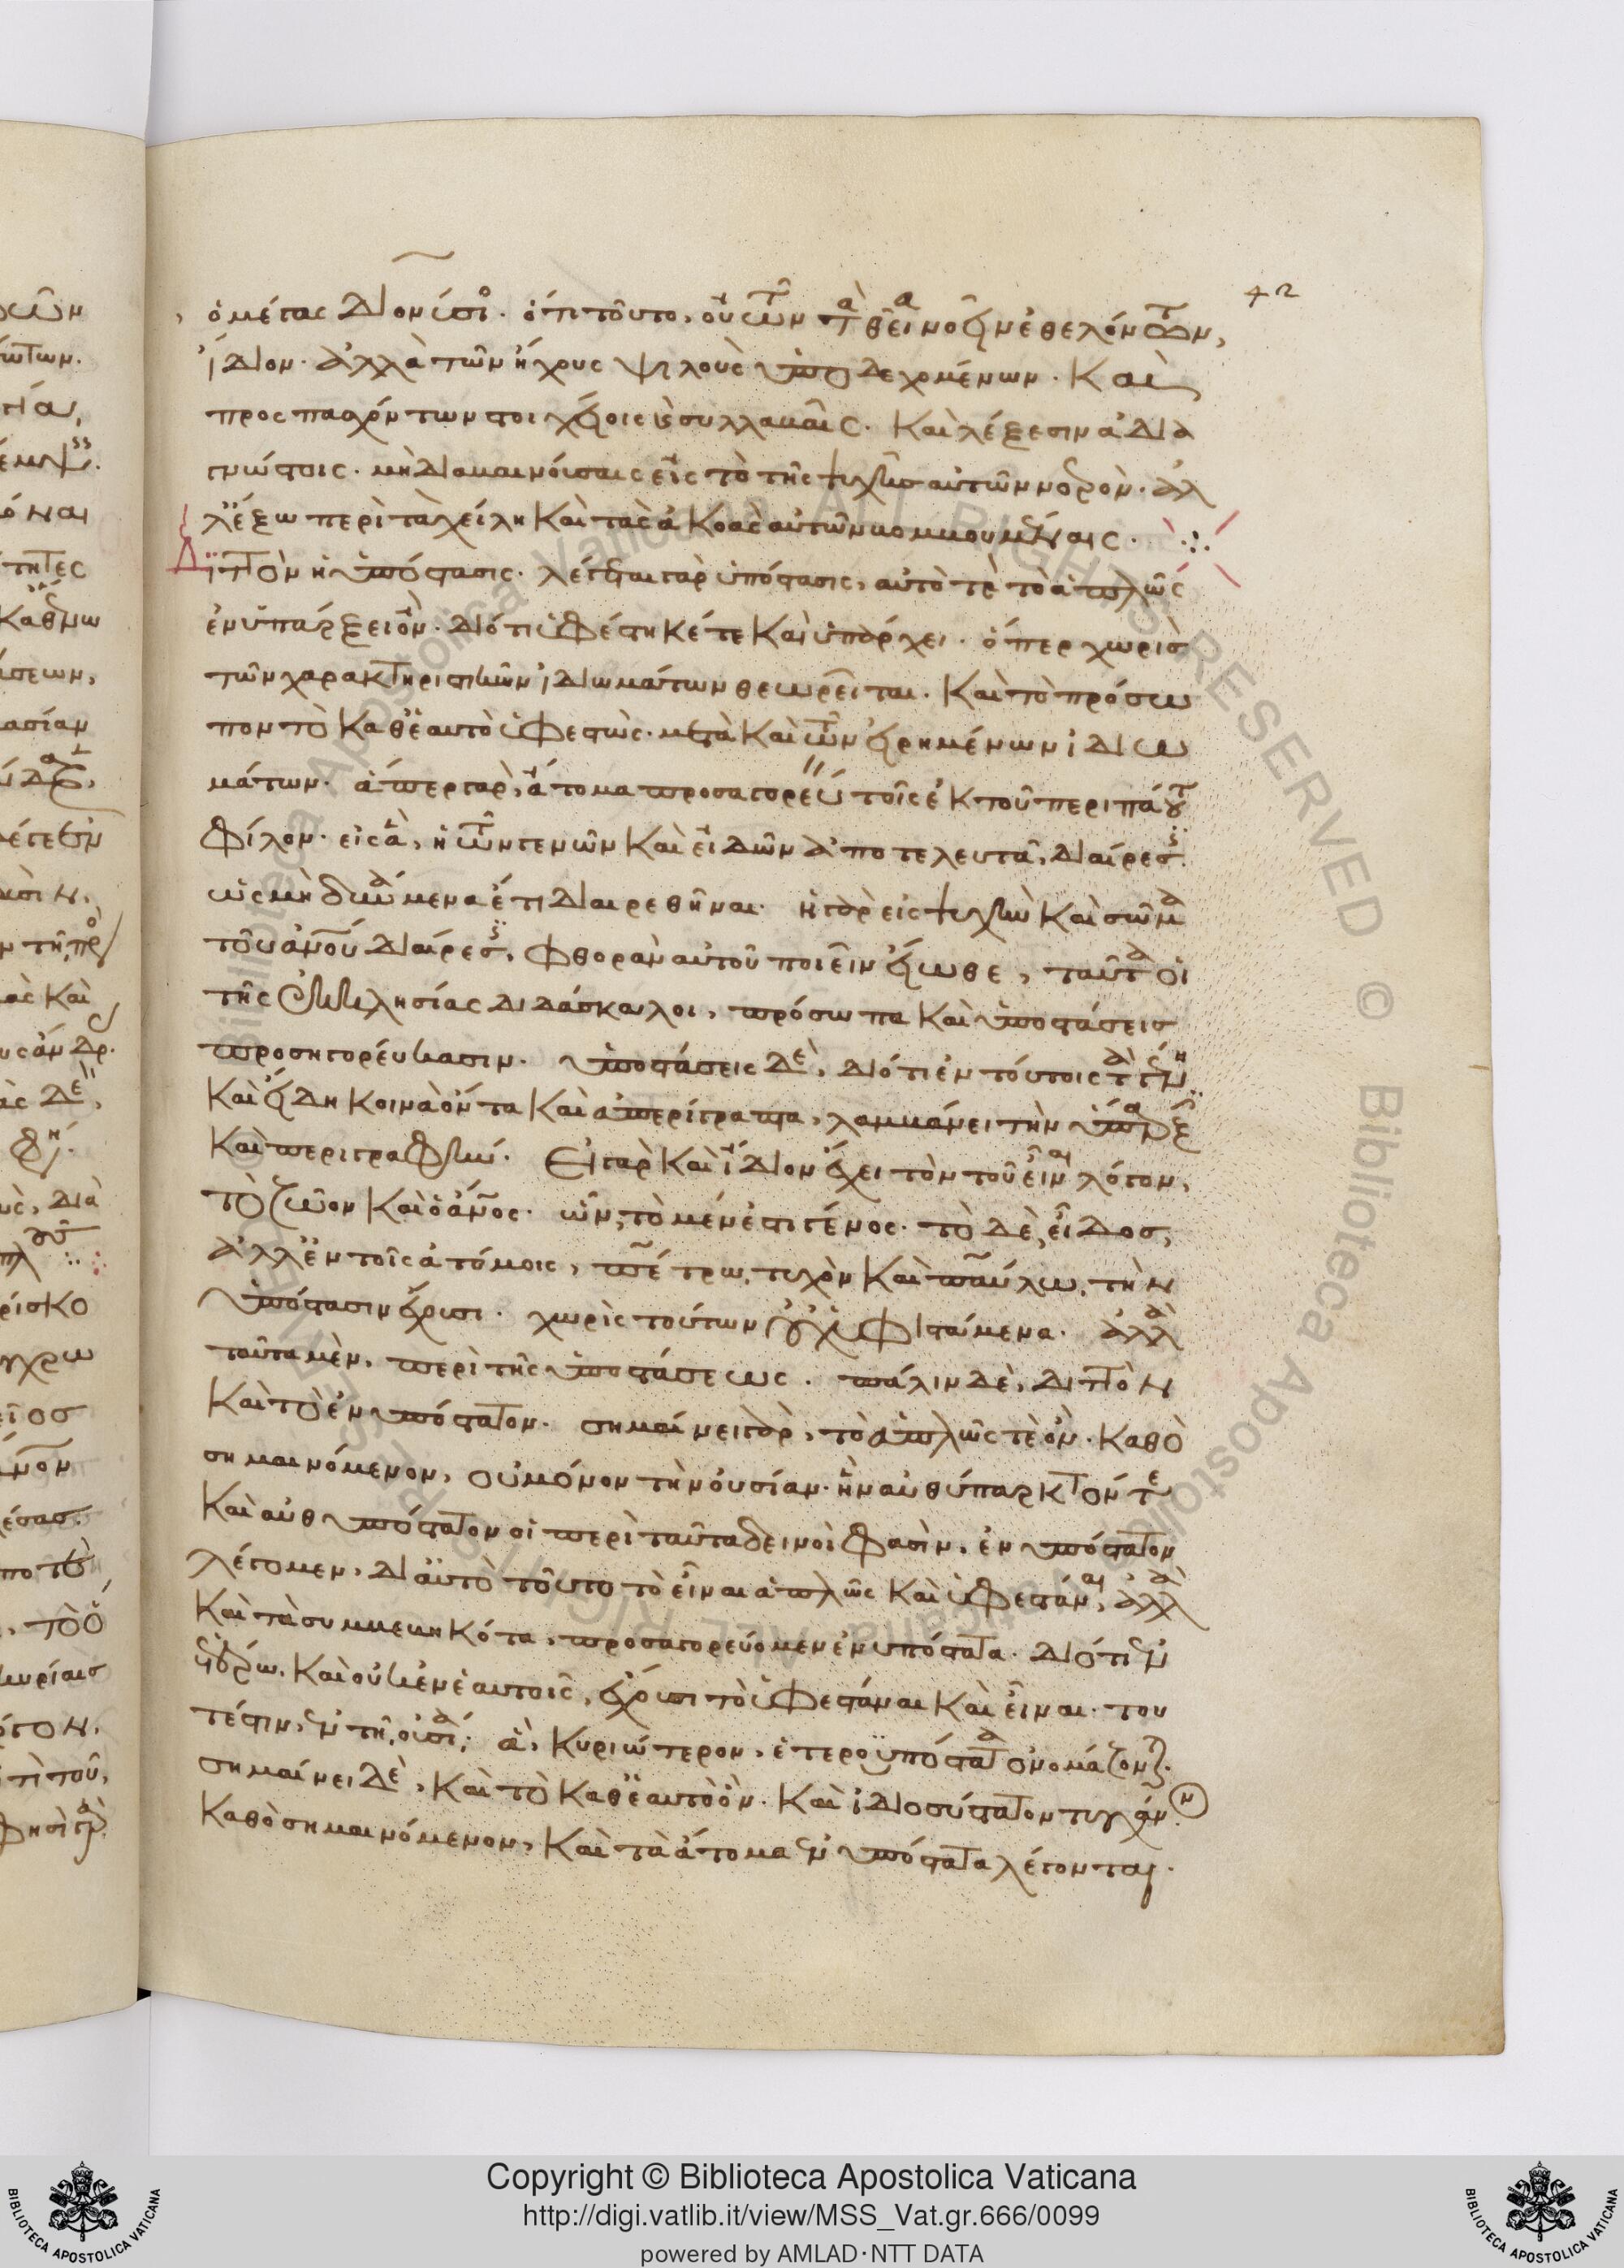 42
ὁ μέγας Διονύσιος. ὅτι τοῦτο, οὐ τῶν τὰ θεῖα νοεῖν ἐθελόντων,
ἴδιον. ἀλλὰ τῶν ἤχους ψιλοὺς ὑποδεχομένων. καὶ
προσπασχόντων στοιχείοις καὶ συλλαβαῖς. καὶ λέξεσιν ἀδια
γνώστοις. μὴ διαβαινούσαις εἰς τὸ τῆς ψυχῆς αὐτῶν νοερὸν. ἀλ
λ' ἔξω περὶ τὰ χείλη καὶ τὰς ἀκοὰς αὐτῶν βομβουμέναις.
Διττὸν ἡ ὑπόστασις. λέγεται γὰρ ὑπόστασις, αὐτό τε τὸ ἁπλῶς
ἐνύπαρξει ὂν. διότι ὑφέστηκέ τε καὶ ὑπάρχει. ὅπερ χωρὶς
τῶν χαρακτηριστικῶν ἰδιωμάτων θεωρεῖται. καὶ τὸ πρόσω
πον τὸ καθ' ἑαυτὸ ὑφεστὼς. μετὰ καὶ τῶν εἰρημένων ἰδιω
μάτων. ἅπερ γὰρ, ἄτομα προσαγορεύειν τοῖς ἐκ τοῦ περιπάτου
φίλον. εἰς ἃ, ἡ τῶν γενῶν καὶ εἰδῶν ἀποτελευτᾶ, διαίρεσις.
ὡς μὴ δυνάμενα ἔτι διαιρεθῆναι. ἡ γὰρ εἰς ψυχὴν καὶ σῶμα
τοῦ ἀνου διαίρεσις, φθορὰν αὐτοῦ ποιεῖν εἴωθε, ταῦτα οἱ
τῆς ἐκκλησίας διδάσκαλοι, πρόσωπα καὶ ὑποστάσεις
προσηγορεύκασιν. ὑποστάσεις δὲ, διότι ἐν τούτοις τὰ γένη
καὶ εἴδη κοινὰ ὄντα καὶ ἀπερίγραπτα, λαμβάνει τὴν ὕπαρξιν
καὶ περιγραφήν. Εἰ γὰρ καὶ ἴδιον ἔχει τὸν τοῦ εἶναι λόγον,
τὸ ζῶον καὶ ὁ ἄνος. ὧν, τὸ μέν ἐστι γένος. τὸ δὲ, εἶδος,
ἀλλ' ἐν τοῖς ἀτόμοις, πέτρω, τυχὸν καὶ παύλω, τὴν
ὑπόστασιν ἔχουσι. χωρὶς τούτων οὐχ ὑφιστάμενα. ἀλλὰ
ταῦτα μὲν, περὶ τῆς ὑποστάσεως. πάλιν δὲ, διττὸν
καὶ τὸ ἐνυπόστατον. σημαίνει γὰρ, τὸ ἁπλῶς τὲ ὂν. καθὸ
σημαινόμενον, οὐ μόνον τὴν οὐσίαν. ἣν αὐθύπαρκτόν τε
καὶ αὐθυπόστατον οἱ περὶ ταῦτα δεινοὶ φασὶν, ἐνυπόστατον
λέγομεν, δι' αὐτὸ τοῦτο τὸ εἶναι ἁπλῶς καὶ ὑφεστάναι, ἀλλὰ
καὶ τὰ συμβεβηκότα, προσαγορεύομεν ἐνυπόστατα. διότι ἐν
ἑτέρω, καὶ οὐκ ἐν ἑαυτοῖς, ἔχουσι τὸ ὑφεστάναι καὶ εἶναι. του
τέστιν, ἐν τῆ οὐσία; ἃ, κυριώτερον, ἑτεροϋπόστατα ὀνομάζονται.
σημαίνει δὲ, καὶ τὸ καθ' ἑαυτὸ ὂν. καὶ ἰδιοσύστατον τυγχάνον
καθὸ σημαινόμενον, καὶ τὰ ἄτομα ἐνυπόστατα λέγονται.
Copyright © Biblioteca Apostolica Vaticana
http://digi.vatlib.it/view/MSS_Vat.gr.666/0099
powered by AMLAD·NTT DATA